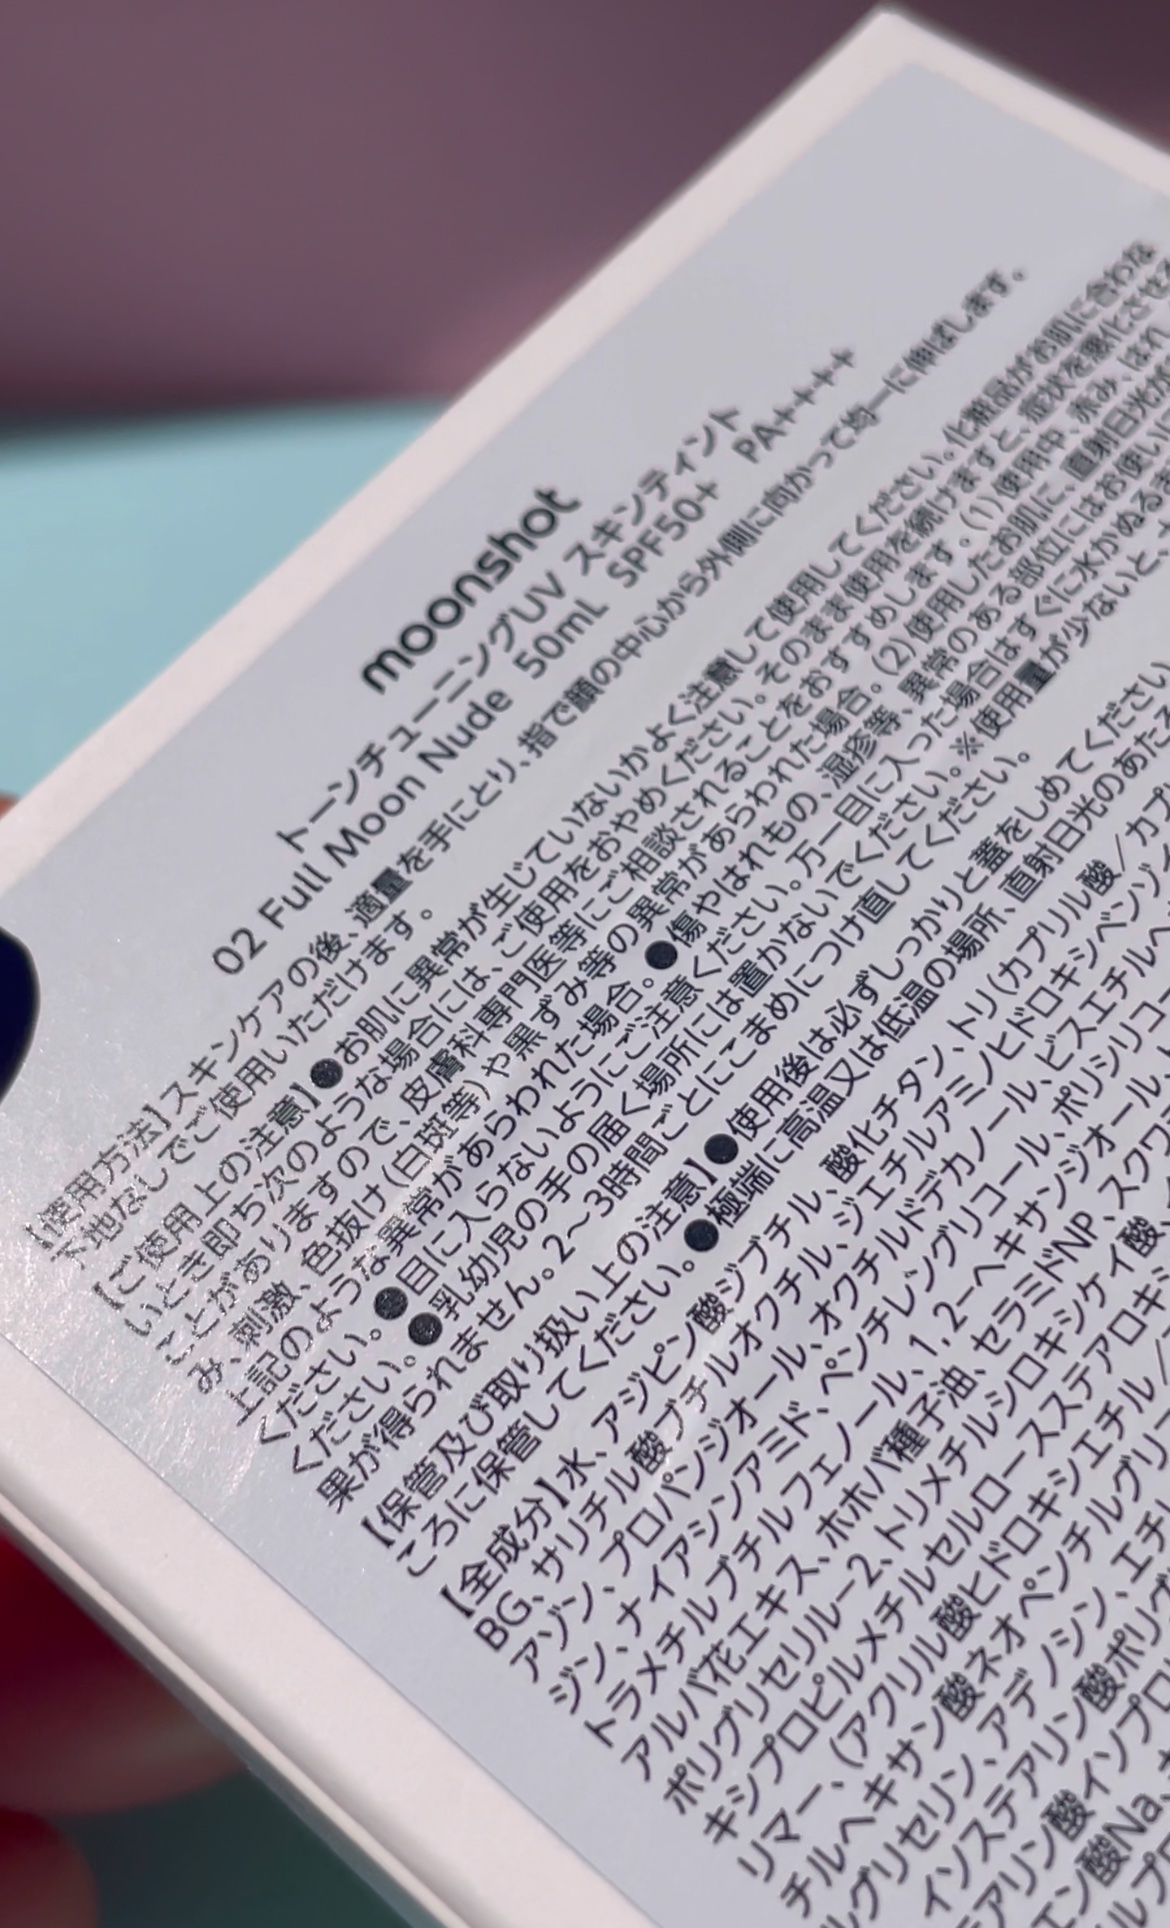 moonshot
トーンチューニングUV スキンティント
02 Full Moon Nude 50mL SPF50+ PA++++
【使用方法】スキンケアの後、適量を手にとり、指で顔の中心から外側に向かって均一に伸ばします。
下地なしでご使用いただけます。
【ご使用上の注意】●お肌に異常が生じていないかよく注意して使用してください。化粧品がお肌に合わな
いとき即ち次のような場合には、ご使用をおやめください。そのまま使用を続けますと、症状を悪化させる
ことがありますので、皮膚科専門医等にご相談されることをおすすめします。(1)使用中、赤み、はれ
み、刺激、色抜け(白斑等)や黒ずみ等の異常があらわれた場合。(2)使用したお肌に、直射日光が
上記のような異常があらわれた場合。●傷やはれもの、湿疹等、異常のある部位にはお使い
ください。●目に入らないようにご注意ください。万一目に入った場合はすぐに水かぬるま
ください。●乳幼児の手の届く場所には置かないでください。※使用量が少ないと、
果が得られません。2〜3時間ごとにこまめにつけ直してください。
【保管及び取り扱い上の注意】●使用後は必ずしっかりと蓋をしめてください
ころに保管してください。●極端に高温又は低温の場所、直射日光のあたる
【全成分】水、アジピン酸ジブチル、酸化チタン、トリ(カプリル酸/カプ
BG、サリチル酸ブチルオクチル、ジエチルアミノヒドロキシベンゾイ
アゾン、プロパンジオール、オクチルドデカノール、ビスエチルヘ
ジン、ナイアシンアミド、ペンチレングリコール、ポリシリコー
トラメチルブチルフェノール、1,2-ヘキサンジオール、
アルバ花エキス、ホホバ種子油、セラミドNP、スクワ
ポリグリセリル-2、トリメチルシロキシケイ酸、
キシプロピルメチルセルロースステアロキシ
リマー、(アクリル酸ヒドロキシエチル/
チルヘキサン酸ネオペンチルグリ
ルグリセリン、アデノシン、エチ
イソステアリン酸ポリグ
アリン酸イソプロ
エン酸Na、
ルプロ